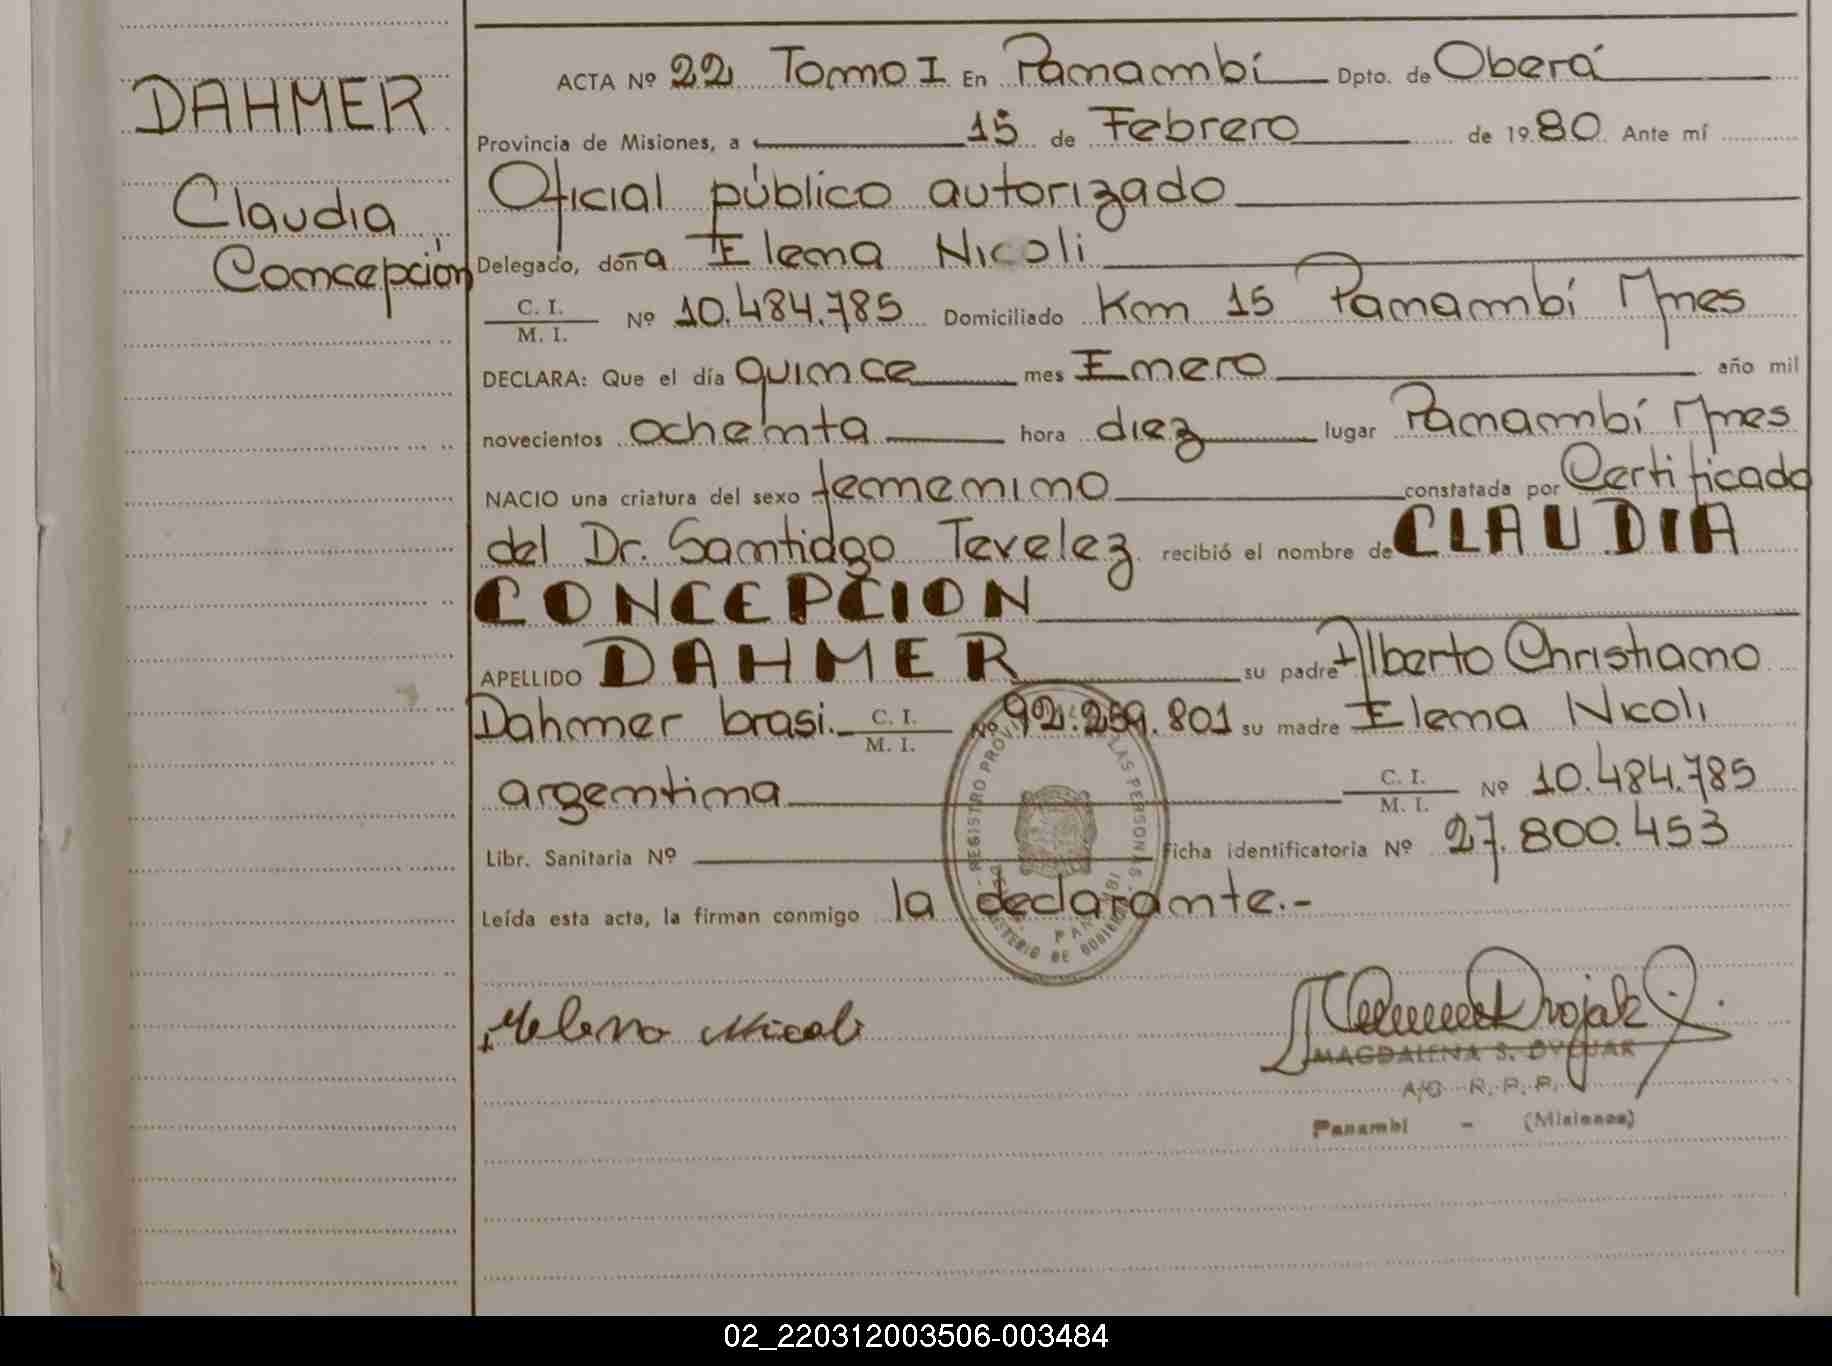 DAHMER
Claudia
Concepción
ACTA Nº 22 Tomo I En Panambí Dpto. de Oberá
Provincia de Misiones, a 15 de Febrero de 1980 Ante mí
Oficial público autorizado
Delegado, doña Elena Nicoli
C. I.
M. I. Nº 10.484.785 Domiciliado Km 15 Panambí Mnes
DECLARA: Que el día quince mes Enero año mil
novecientos ochenta hora diez lugar Panambí Mnes
NACIO una criatura del sexo femenino constatada por Certificado
del Dr. Santiago Tevelez recibió el nombre de CLAUDIA
CONCEPCION
APELLIDO DAHMER su padre Alberto Christiano
Dahmer brasi. C. I. M. I. Nº 92.259.801 su madre Elena Nicoli
argentina C. I. M. I. Nº 10.484.785
Libr. Sanitaria Nº Ficha identificatoria Nº 27.800.453
Leída esta acta, la firman conmigo la declarante.-
REGISTRO PROV LAS PERSONAS
MINISTERIO DE GOBIERNO
Helena Nicoli
MAGDALENA S. DVOJAK
A/C R. P. P.
Panambí - (Misiones)
02_220312003506-003484